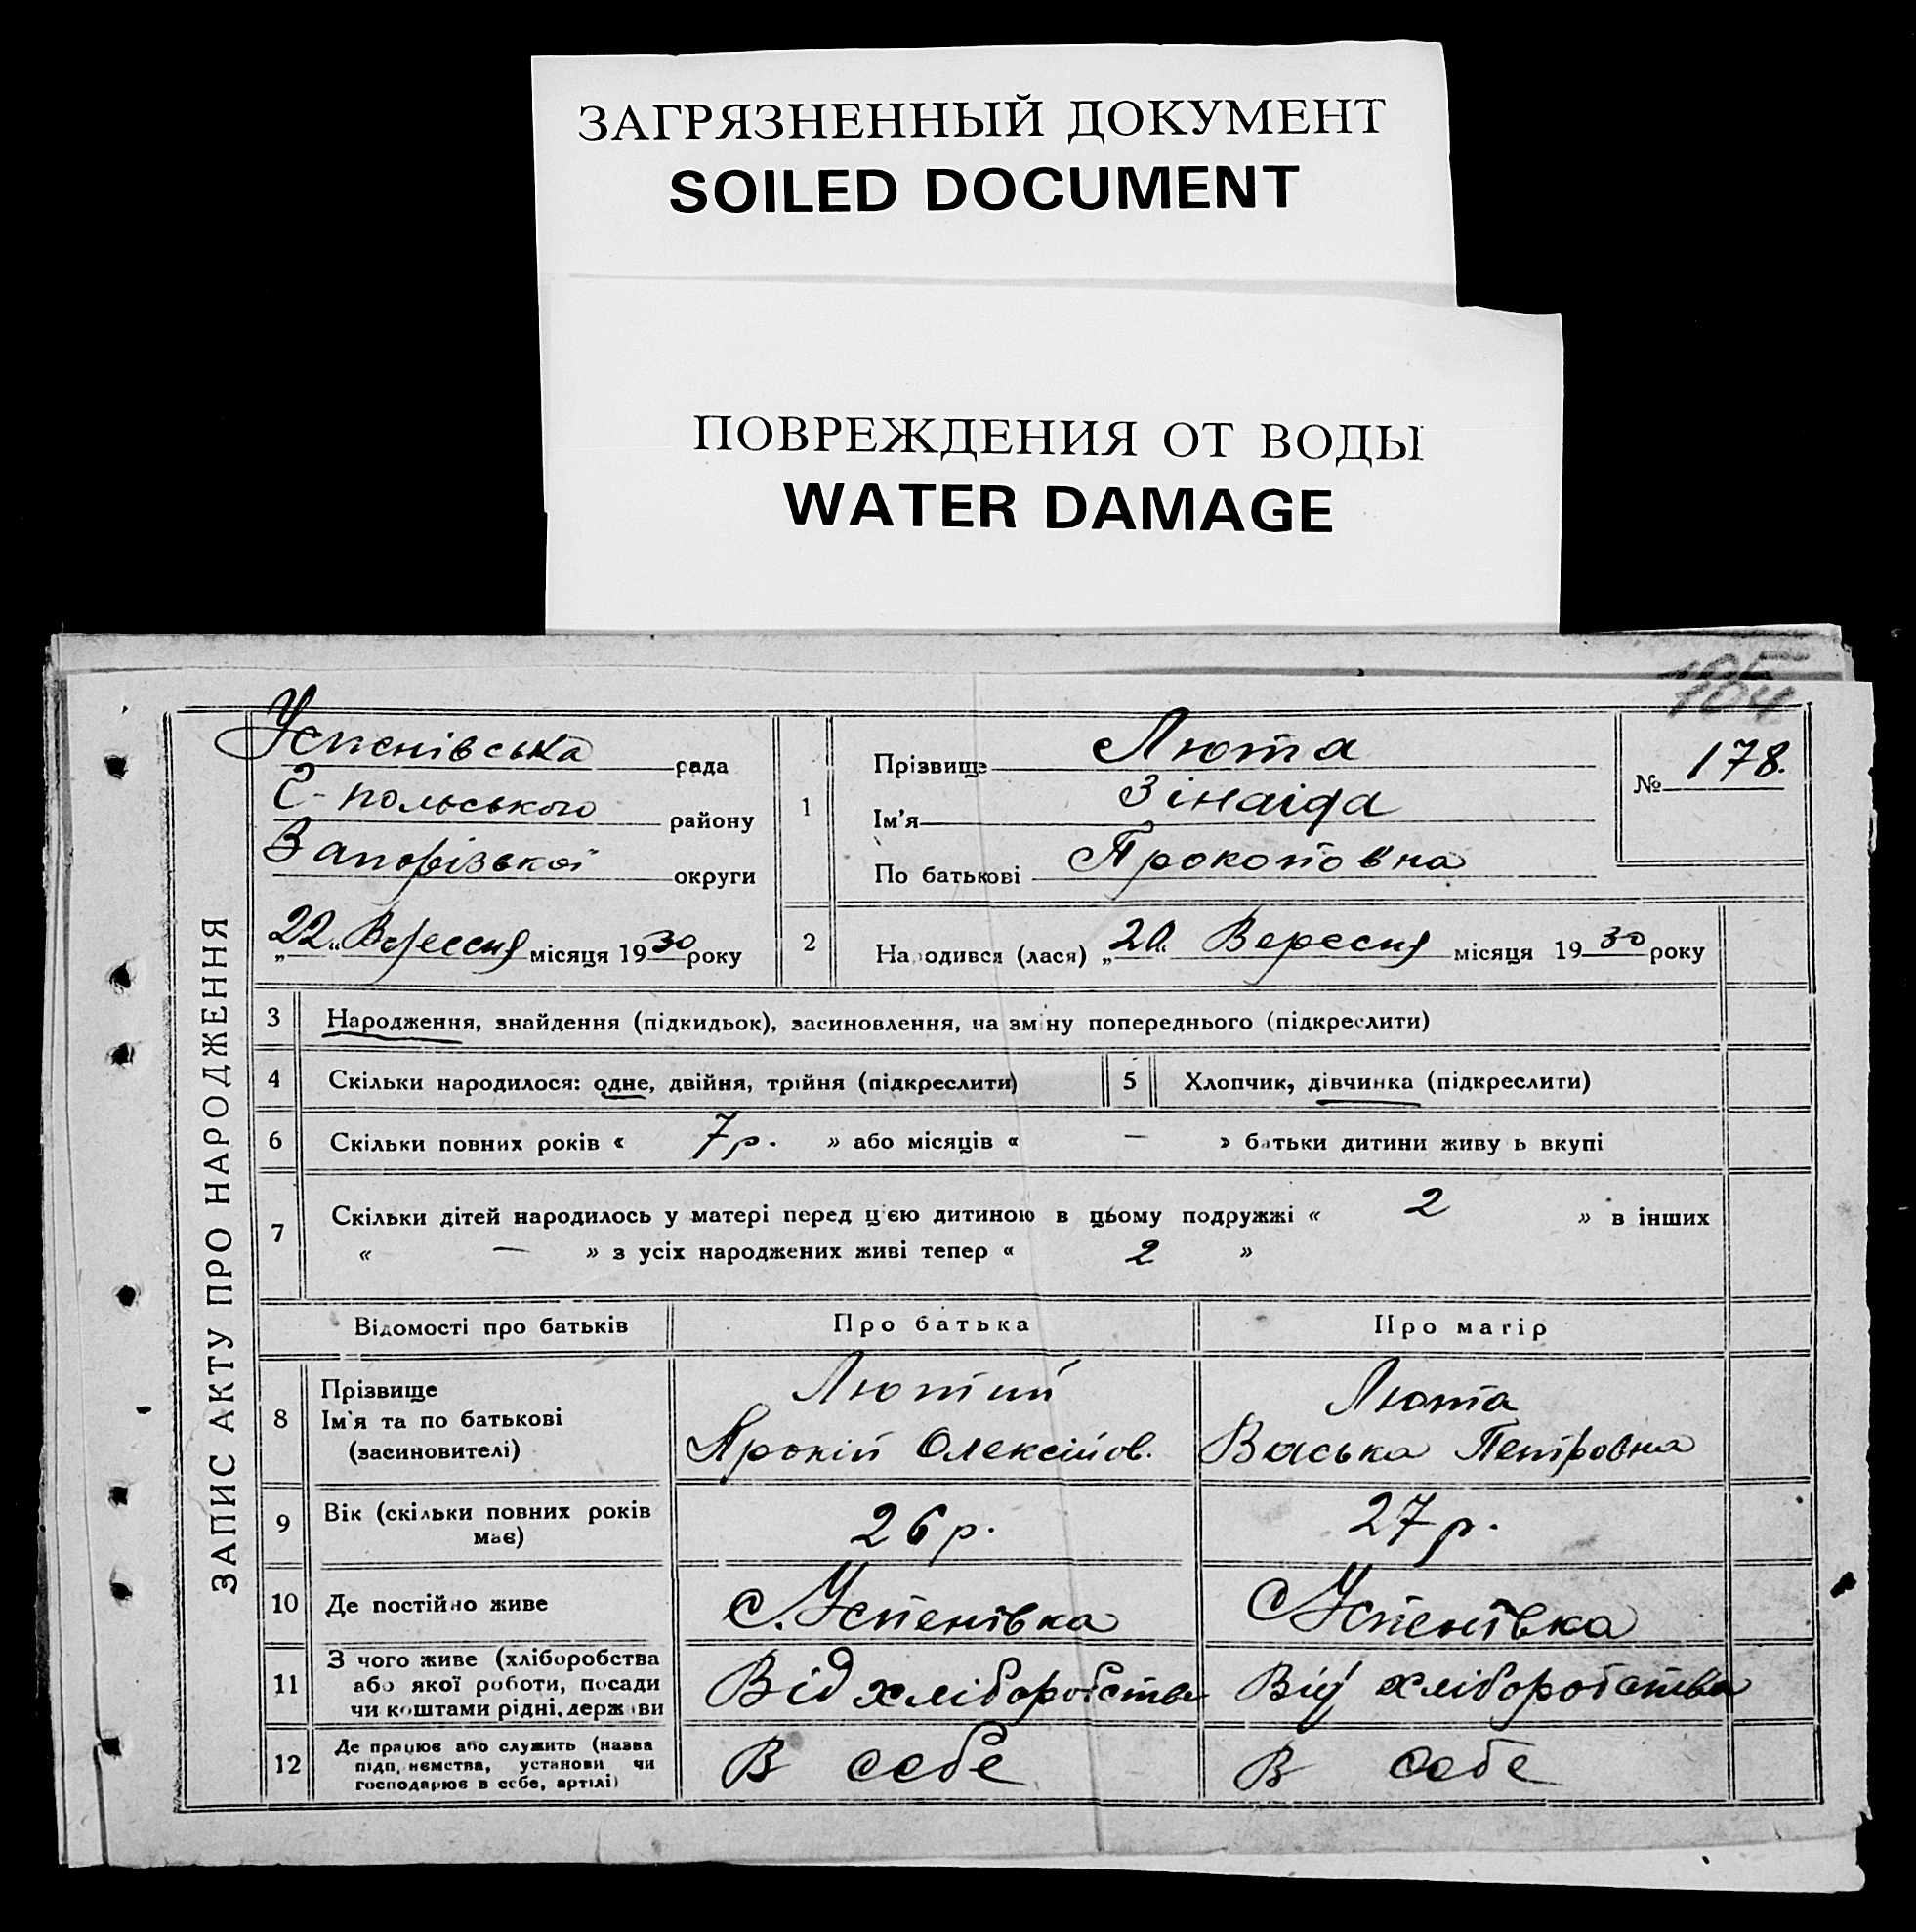 ЗАГРЯЗНЕННЫЙ ДОКУМЕНТ
SOILED DOCUMENT
ПОВРЕЖДЕНИЯ ОТ ВОДЫ
WATER DAMAGE
ЗАПИС АКТУ ПРО НАРОДЖЕННЯ
Успенівська рада
Г-польського району
Запорізької округи
„22" Вересня місяця 1930 року
1
Прізвище Люта
Ім'я Зінаіда
По батькові Прокоповна
№ 178.
2 Народився (лася) „20" Вересня місяця 1930 року
3 Народження, знайдення (підкидьок), засиновлення, на зміну попереднього (підкреслити)
4 Скільки народилося: одне, двійня, трійня (підкреслити) 5 Хлопчик, дівчинка (підкреслити)
6 Скільки повних років « 7 р. » або місяців « — » батьки дитини живуть вкупі
7 Скільки дітей народилось у матері перед цією дитиною в цьому подружжі « 2 » в інших
« — » з усіх народжених живі тепер « 2 »
Відомості про батьків Про батька Про матір
8 Прізвище
Ім'я та по батькові
(засиновителі)
Лютий
Прокіп Олексійов.
Люта
Васька Петровна
9 Вік (скільки повних років
має)
26 р. 27 р.
10 Де постійно живе с. Успенівка с Успенівка
11 З чого живе (хліборобства
або якої роботи, посади
чи коштами рідні, держави
Від хліборобства Від хліборобства
12 Де працює або служить (назва
підприємства, установи чи
господарює в себе, артілі)
В себе В себе